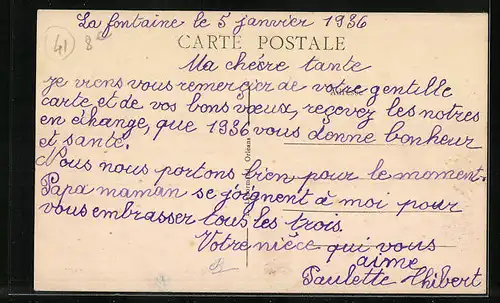 La fontaine le 5 janvier 1936
41 8
CARTE POSTALE
Ma chésre tante
je viens vous remercier de votre gentille
carte et de vos bons vœux, reçevez les notres
en échange, que 1936 vous donne bonheur
et santé.
Nous nous portons bien pour le moment.
Papa maman se joignent à moi pour
vous embrasser tous les trois
Votre niéce qui vous
aime
Paulette Thibert